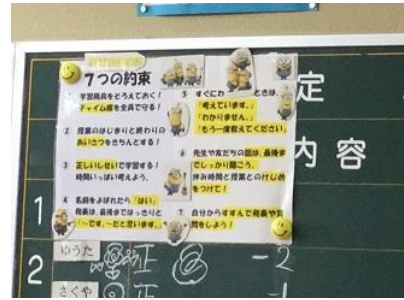 7つの約束
1 学習用具をそろえておく!
チャイム席を全員で守る!
2 授業のはじまりと終わりの
あいさつをきちんとする!
3 正しいしせいで学習する!
時間いっぱい考えよう。
4 名前をよばれたら「はい」
発表は、最後まではっきりと
「〜です。〜だと思います。」
5 すぐにわ ときは、
「考えています。」
「わかりません。」
「もう一度教えてください」
6 先生や友だちの話は、最後ま
でしっかり聞こう。
休み時間と授業とのけじめ
をつけて!
7 自分からすすんで発表や質
問をしよう!
定
内容
1
2
ゆうた 正 -2
さくや 正 -1